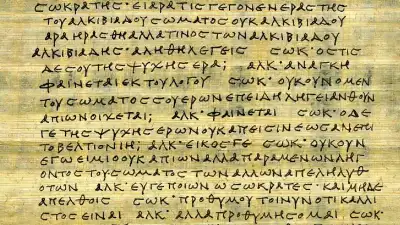 ΣΩΚΡΑΤΗΣ· ΕΙ ΑΡΑ ΤΙΣ ΓΕΓΟΝΕΝ ΕΡΑΣΤΗΣ
ΤΟΥ ΑΛΚΙΒΙΑΔΟΥ ΣΩΜΑΤΟΣ ΟΥΚ ΑΛΚΙΒΙΑΔΟΥ
ΑΡΑ ΗΡΑΣΘΗ ΑΛΛΑ ΤΙΝΟΣ ΤΩΝ ΑΛΚΙΒΙΑΔΟΥ
ΑΛΚΙΒΙΑΔΗΣ· ΑΛΗΘΗ ΛΕΓΕΙΣ ΣΩΚ· ΟΣΤΙΣ
ΔΕ ΣΟΥ ΤΗΣ ΨΥΧΗΣ ΕΡΑ; ΑΛΚ· ΑΝΑΓΚΗ
ΦΑΙΝΕΤΑΙ ΕΚ ΤΟΥ ΛΟΓΟΥ ΣΩΚ· ΟΥΚΟΥΝ Ο ΜΕΝ
ΤΟΥ ΣΩΜΑΤΟΣ ΣΟΥ ΕΡΩΝ ΕΠΕΙΔΗ ΛΗΓΕΙ ΑΝΘΟΥΝ
ΑΠΙΩΝ ΟΙΧΕΤΑΙ; ΑΛΚ· ΦΑΙΝΕΤΑΙ ΣΩΚ· Ο ΔΕ
ΓΕ ΤΗΣ ΨΥΧΗΣ ΕΡΩΝ ΟΥΚ ΑΠΕΙΣΙΝ ΕΩΣ ΑΝ ΕΠΙ
ΤΟ ΒΕΛΤΙΟΝ ΙΗ; ΑΛΚ· ΕΙΚΟΣ ΓΕ ΣΩΚ· ΟΥΚΟΥΝ
ΕΓΩ ΕΙΜΙ Ο ΟΥΚ ΑΠΙΩΝ ΑΛΛΑ ΠΑΡΑΜΕΝΩΝ ΛΗΓ
ΟΝΤΟΣ ΤΟΥ ΣΩΜΑΤΟΣ ΤΩΝ ΑΛΛΩΝ ΑΠΕΛΗΛΥΘ
ΟΤΩΝ ΑΛΚ· ΕΥ ΓΕ ΠΟΙΩΝ Ω ΣΩΚΡΑΤΕΣ· ΚΑΙ ΜΗΔΕ
ΑΠΕΛΘΟΙΣ ΣΩΚ· ΠΡΟΘΥΜΟΥ ΤΟΙΝΥΝ ΟΤΙ ΚΑΛΛΙ
ΣΤΟΣ ΕΙΝΑΙ ΑΛΚ· ΑΛΛΑ ΠΡΟΘΥΜΗΣΟΜΑΙ. ΣΩΚ·